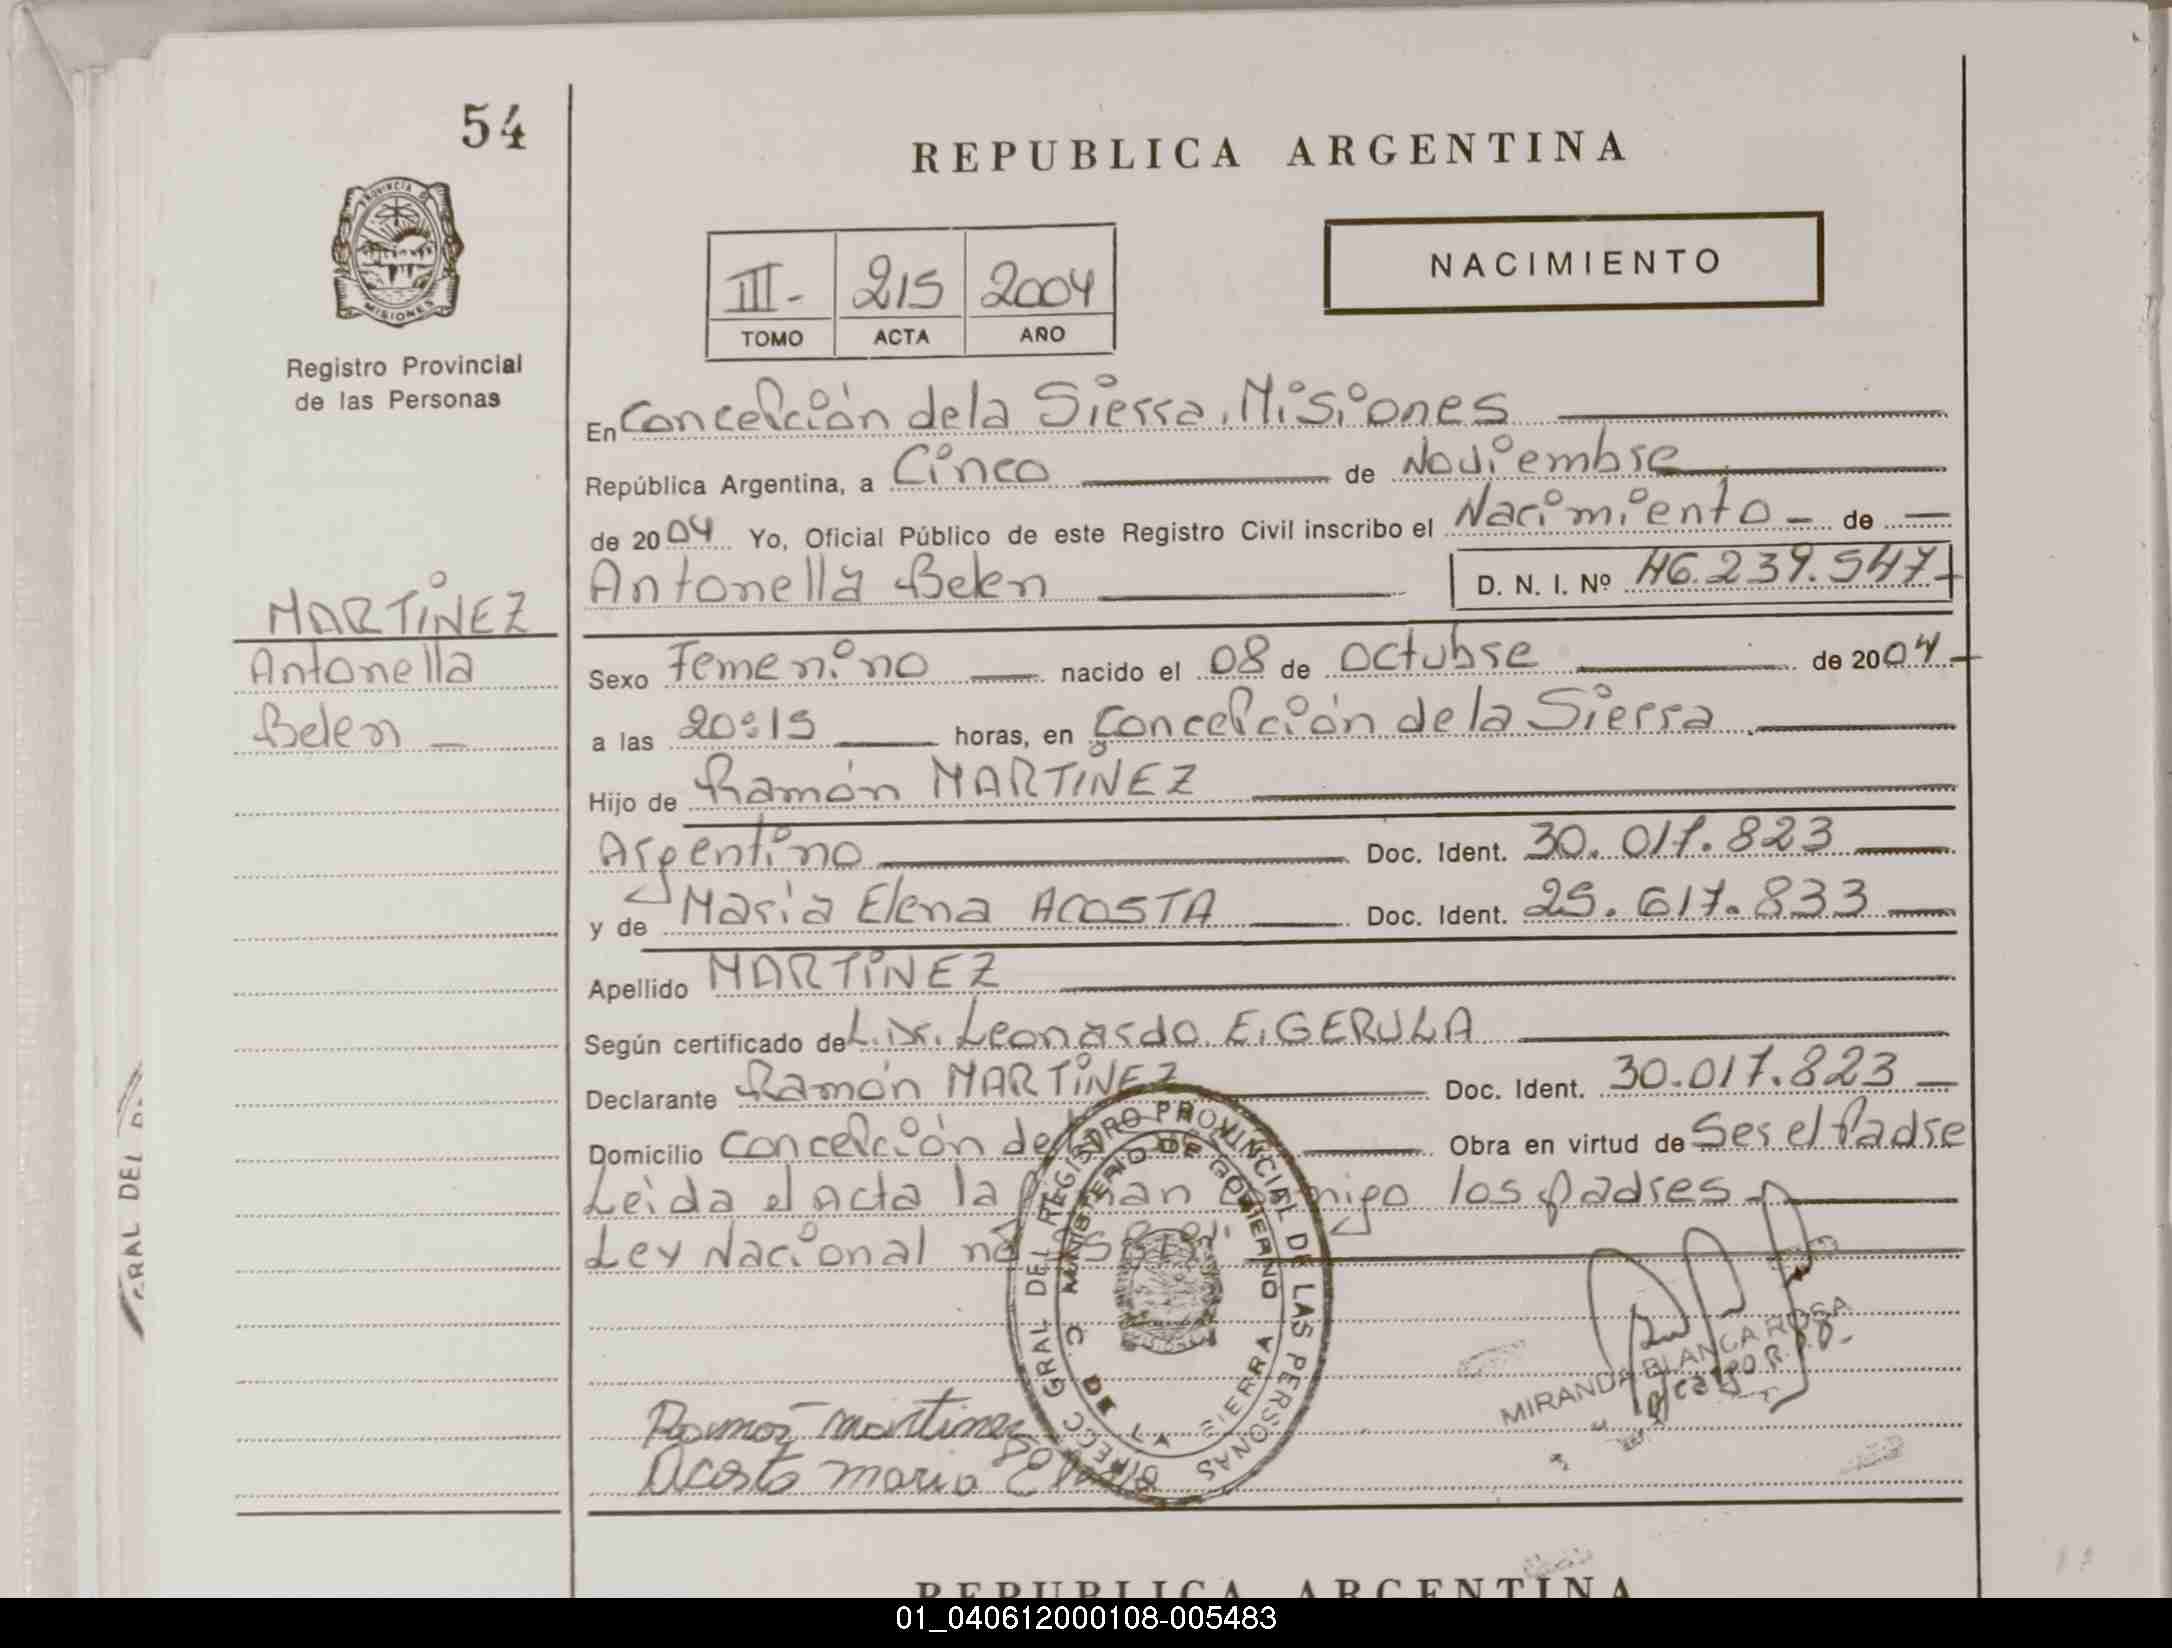 54
REPUBLICA ARGENTINA
PROVINCIA DE
MISIONES
Registro Provincial
de las Personas
III- 215 2004
TOMO ACTA AÑO
NACIMIENTO
En Concepción de la Sierra, Misiones
República Argentina, a Cinco de Noviembre
de 2004 Yo, Oficial Público de este Registro Civil inscribo el Nacimiento - de
Antonella Belen D. N. I. Nº 46.239.547
MARTINEZ
Antonella
Belen
Sexo Femenino nacido el 08 de octubre de 2004
a las 20:15 horas, en Concepción de la Sierra
Hijo de Ramón MARTINEZ
Argentino Doc. Ident. 30.017.823
y de Maria Elena ACOSTA Doc. Ident. 25.617.833
Apellido MARTINEZ
Según certificado de L. Dr. Leonardo E. GERULA
Declarante Ramón MARTINEZ Doc. Ident. 30.017.823
Domicilio Concepción de Obra en virtud de Ser el Padre
Leida el Acta la los padres
Ley Nacional
DIRECC GRAL DEL REGISTRO PROVINCIAL DE LAS PERSONAS
MINISTERIO DE GOBIERNO
C. DE LA SIERRA
MIRANDA BLANCA ROSA
Ramon martinez
Acosta maria
GRAL DEL
REPUBLICA ARGENTINA
01_040612000108-005483